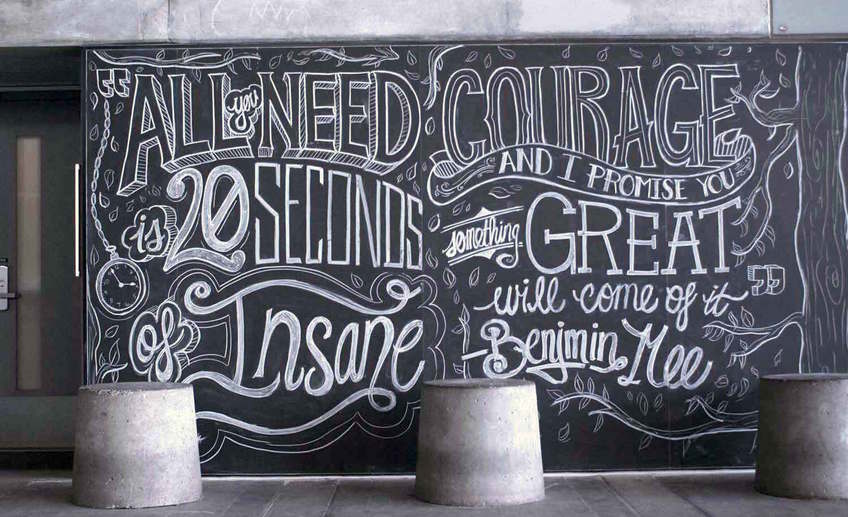 “ALL you NEED
is 20 SECONDS
of Insane
COURAGE
AND I PROMISE YOU
something GREAT
will come of it”
-Benjmin Mee